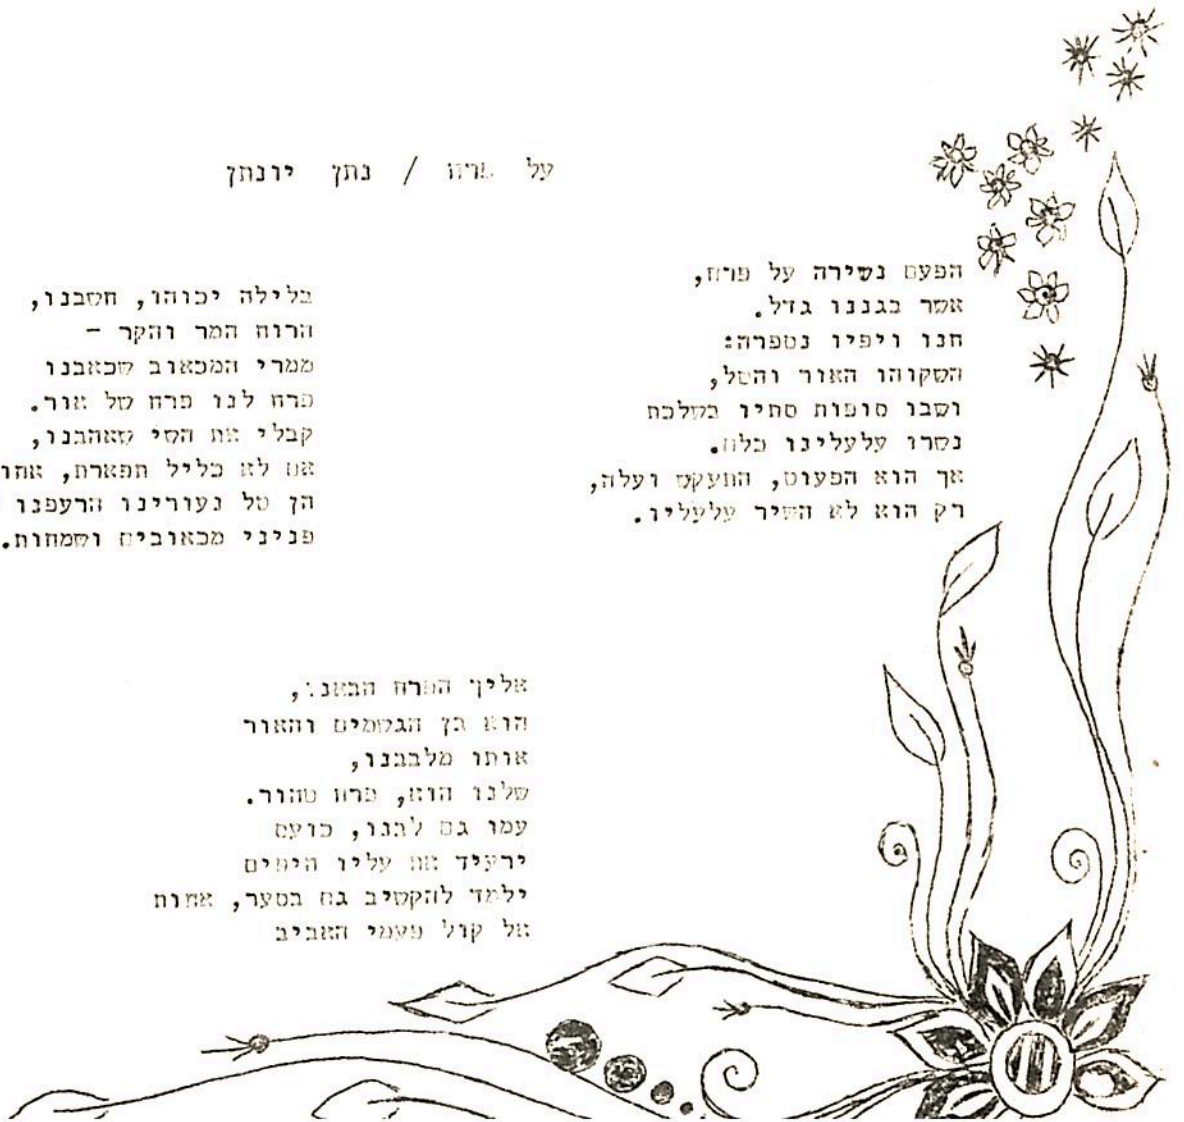 על פרח / נתן יונתן
הפעם נשירה על פרח,
אשר בגננו גדל.
חנו ויפיו נספרה:
השקוהו האור והטל,
ושבו סופות סתיו בשלכת
נשרו עלעלינו כלח.
אך הוא הפעוט, התעקש ועלה,
רק הוא לא השיר עלעליו.
בלילה יכוהו, חשבנו,
הרוח המר והקר -
ממרי המכאוב שכאבנו
פרח לנו פרח של אור.
קבלי את השי שאהבנו,
אם לא כליל תפארת, אחו
הן טל נעורינו הרעפנו
פניני מכאובים ושמחות.
אליך הפרח הבאנו,
הוא בן הגשמים והאור
אותו מלבבנו,
שלנו הוא, פרח טהור.
עמו גם לבנו, כועס
ירעיד את עליו היפים
ילמד להקשיב גם בסער, אחות
אל קול פעמי האביב